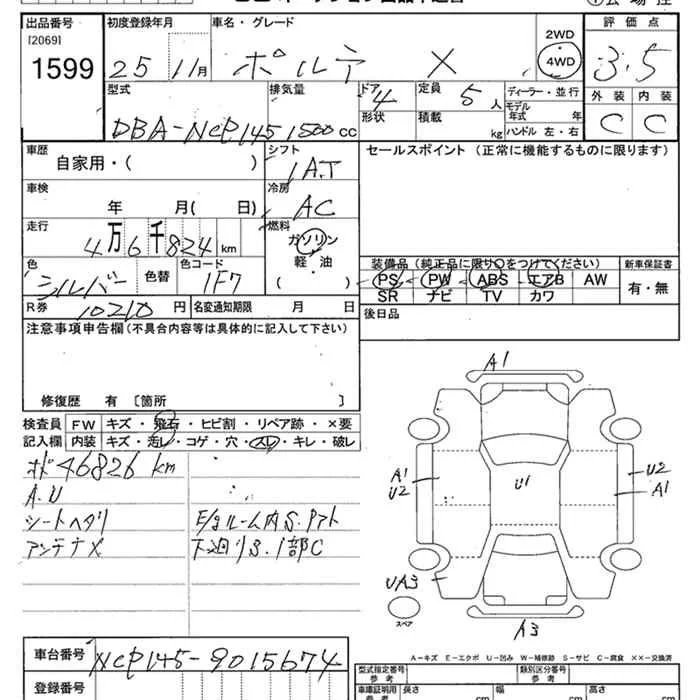 出品番号 初度登録年月 車名・グレード 2WD 評価点
[2069] 4WD
1599 25 11月 ポルテ X 3.5
型式 排気量 ドア 4 定員 5人 ディーラー・並行 外装 内装
DBA-NCP145 1500cc 形状 積載 kg モデル年式 年 C C
ハンドル 左・右
車歴 シフト セールスポイント (正常に機能するものに限ります)
自家用・( ) IAT
車検 冷房
年 月( 日) AC
走行 燃料
4万6千824km ガソリン
色 色替 色コード 軽・油 装備品 (純正品に限り○をつけてください) 新車保証書
シルバー 1F7 ( ) PS PW ABS エアB AW 有・無
SR ナビ TV カワ
R券 10210円 名変通知期限 月 日 後日品
注意事項申告欄(不具合内容等は具体的に記入して下さい)
修復歴 有 〔箇所 〕 A1
検査員 FW キズ・飛石・ヒビ割・リペア跡・×要
記入欄 内装 キズ・汚レ・コゲ・穴・スレ・キレ・破レ
46826km A1 U2 U1 U2 A1
A.U
シートヘタリ E/gルーム内S.アト
アンテナX 下廻りS.1部C UA3
スペア
A3
車台番号 NCP145-9015674 A-キズ E-エクボ U-凹み W-補修跡 S-サビ C-腐食 XX-交換済
型式指定番号 参考 類別区分番号 参考
登録番号 車庫証明用 参考 長さ cm 幅 cm 高さ cm